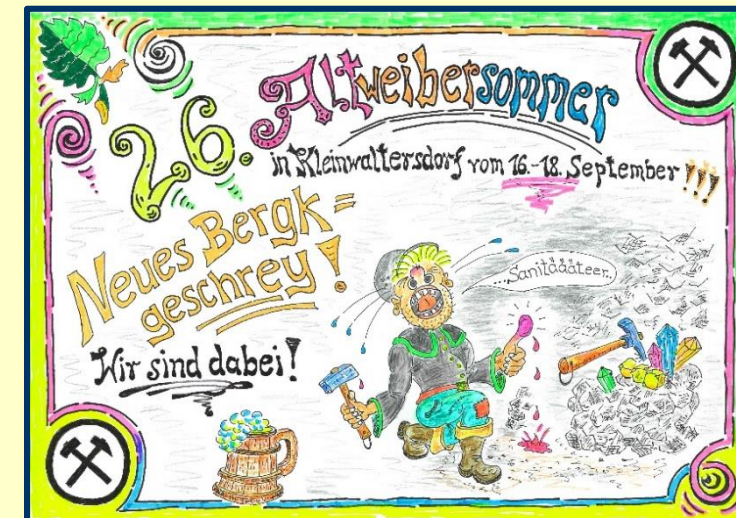 26. Altweibersommer
in Kleinwaltersdorf vom 16.-18. September!!!
Neues Bergk=
geschrey!
Wir sind dabei!
...Sanitäääteer..